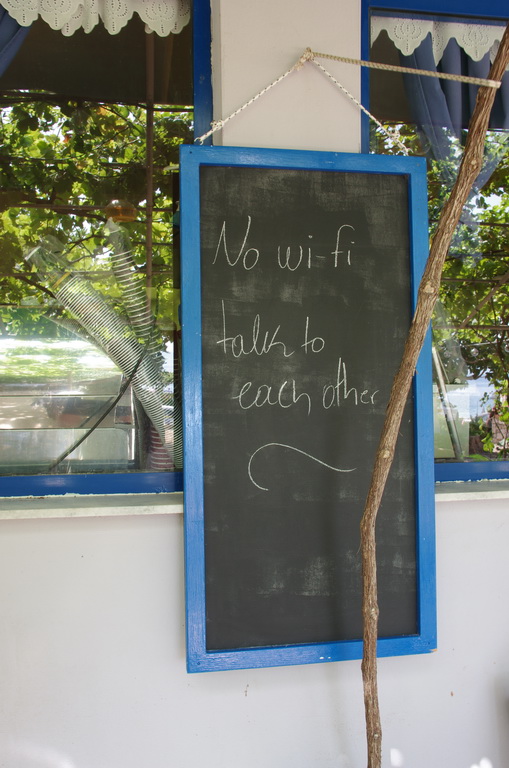 No wi-fi
talk to
each other